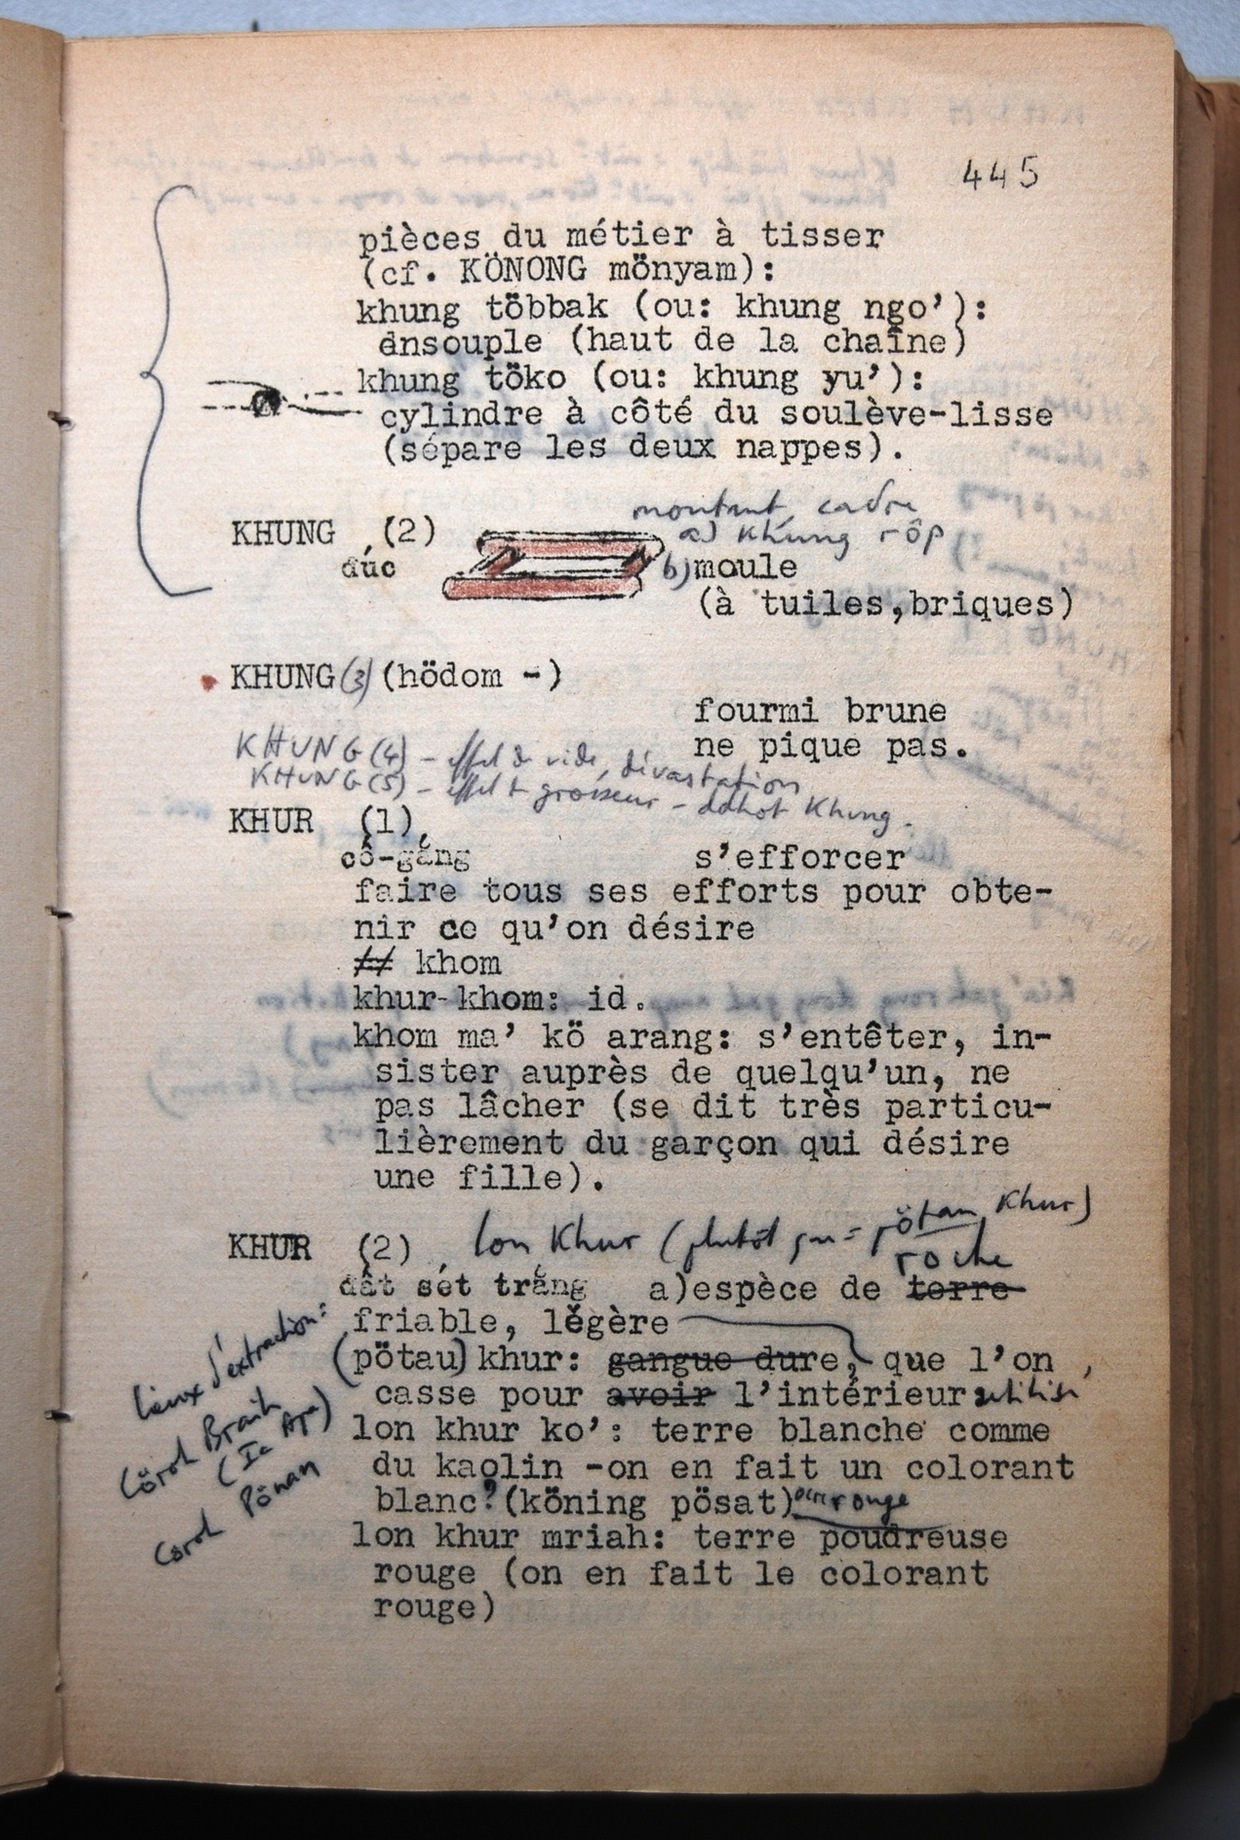 445
pièces du métier à tisser
(cf. KÖNONG mönyam):
khung többak (ou: khung ngo’):
ɗnsouple (haut de la chaîne)
khung töko (ou: khung yu’):
cylindre à côté du soulève-lisse
(sépare les deux nappes).
montant, cadre
KHUNG (2) a) khung rôp
đúc b) moule
(à tuiles,briques)
KHUNG (3) (hödom -)
fourmi brune
ne pique pas.
KHUNG (4) - effet de vide, dévastation
KHUNG (5) - effet de grosseur - dahot khung.
KHUR (1)
cố-gắng s’efforcer
faire tous ses efforts pour obte-
nir ce qu’on désire
khom
khur-khom: id.
khom ma’ kö arang: s’entêter, in-
sister auprès de quelqu’un, ne
pas lâcher (se dit très particu-
lièrement du garçon qui désire
une fille).
KHUR (2) lon khur (plutôt que pötau khur)
roche
đất sét trắng a)espèce de terre
friable, légère
(pötau) khur: gangue dure, que l’on
casse pour avoir l’intérieur utilisé
lon khur ko’: terre blanche comme
du kaolin -on en fait un colorant
blanc? (köning pösat) ocre rouge
lon khur mriah: terre poudreuse
rouge (on en fait le colorant
rouge)
lieux d'extraction:
Cöroh Braih
(Ia Apa)
Coroh Pönan